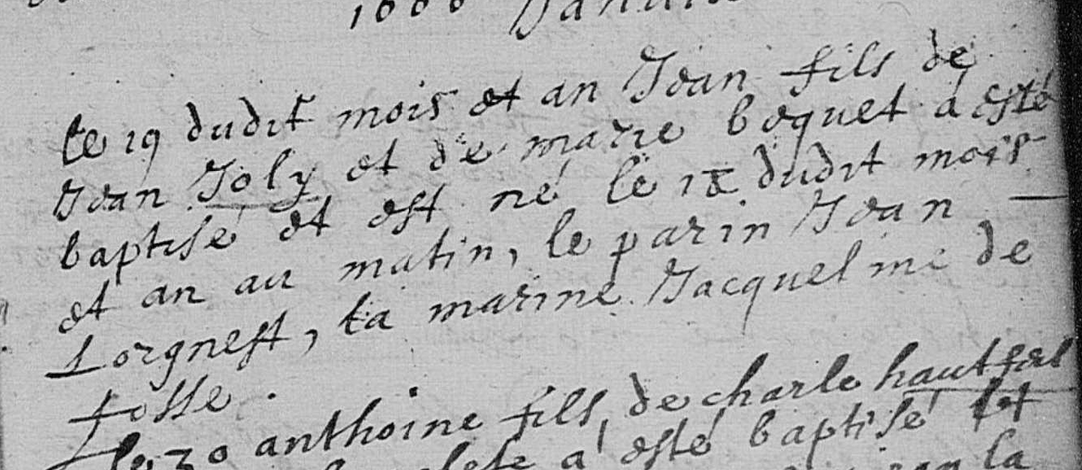 le 19 dudit mois et an Jean fils de
Jean Joly et de marie boquet a esté
baptisé et est né le 18 dudit mois
et an au matin, le parin Jean
Lorgnest, la marine Jacqueline de
fosse.
le 30 anthoine fils de charle hautfert
a esté baptisé et